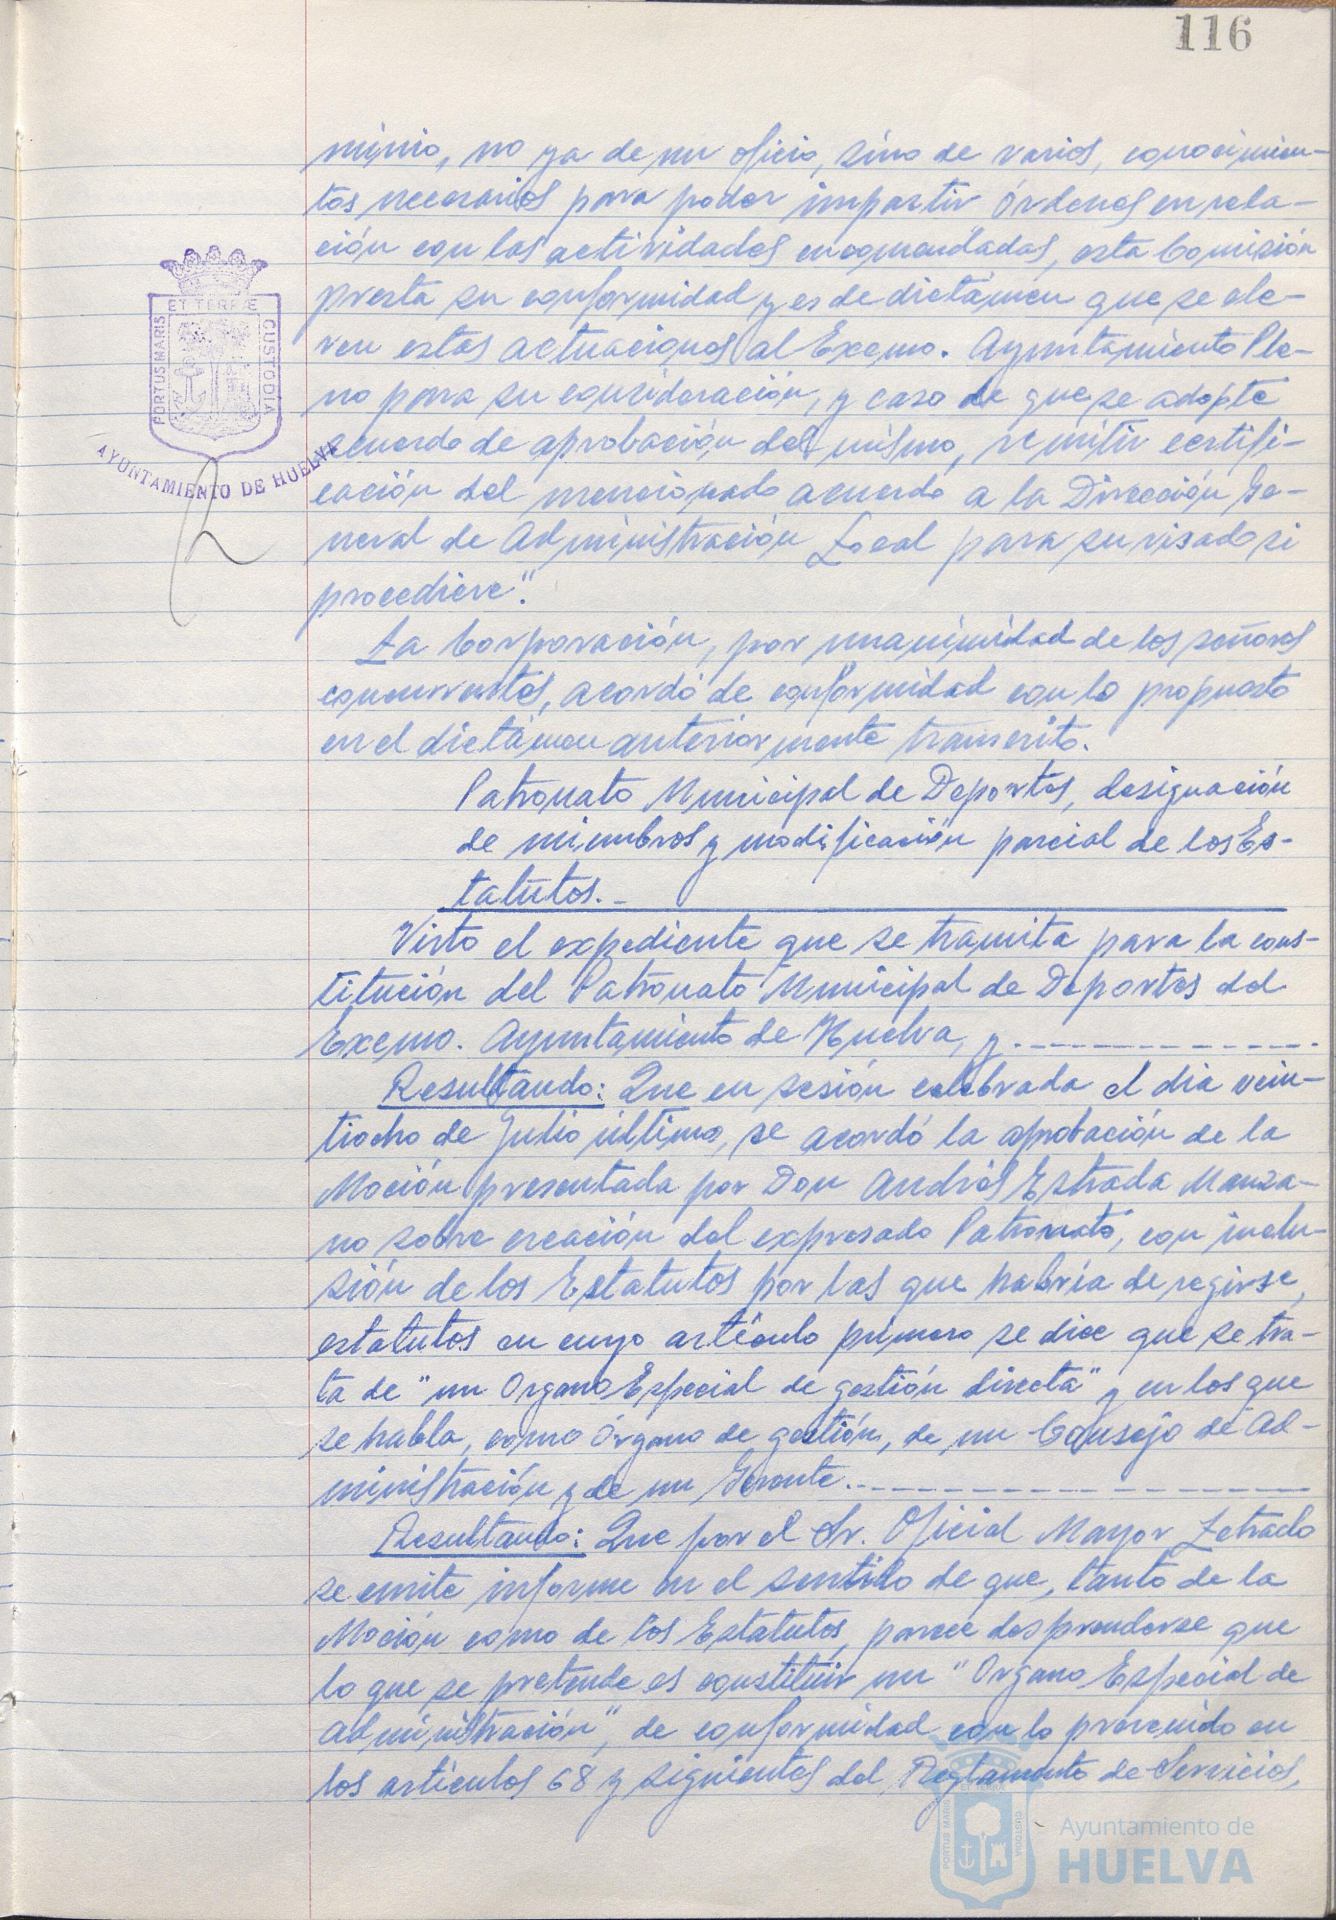 116
minio, no ya de un oficio, sino de varios, conocimien-
tos necesarios para poder impartir órdenes en rela-
ción con las actividades encomendadas, esta Comisión
presta su conformidad y es de dictámen que se ele-
ven estas actuaciones al Excmo. Ayuntamiento Ple-
no para su consideración, y caso de que se adopte
acuerdo de aprobación del mismo, remitir certifi-
cación del mencionado acuerdo a la Dirección Ge-
neral de Administración Local para su visado si
procediere".
La Corporación, por unanimidad de los señores
concurrentes, acordó de conformidad con lo propuesto
en el dictámen anteriormente transcrito.
Patronato Municipal de Deportes, designación
de miembros y modificación parcial de los Es-
tatutos.-
Visto el expediente que se tramita para la cons-
titución del Patronato Municipal de Deportes del
Excmo. Ayuntamiento de Huelva, y
Resultando: Que en sesión celebrada el dia vein-
tiocho de Julio último, se acordó la aprobación de la
Moción presentada por Don Andrés Estrada Manza-
no sobre creación del expresado Patronato, con inclu-
sión de los Estatutos por las que habría de regirse,
estatutos en cuyo artículo primero se dice que se tra-
ta de "un Organo Especial de gestión directa" y en los que
se habla, como Órgano de gestión, de un Consejo de Ad-
ministración y de un Gerente.
Resultando: Que por el Sr. Oficial Mayor Letrado
se emite informe en el sentido de que, tanto de la
Moción como de los Estatutos, parece desprenderse que
lo que se pretende es constituir un "Organo Especial de
Administración", de conformidad con lo prevenido en
los artículos 68 y siguientes del Reglamento de Servicios,
PORTUS MARIS ET TERRAE CUSTODIA
AYUNTAMIENTO DE HUELVA
PORTUS MARIS CUSTODIA
Ayuntamiento de
HUELVA